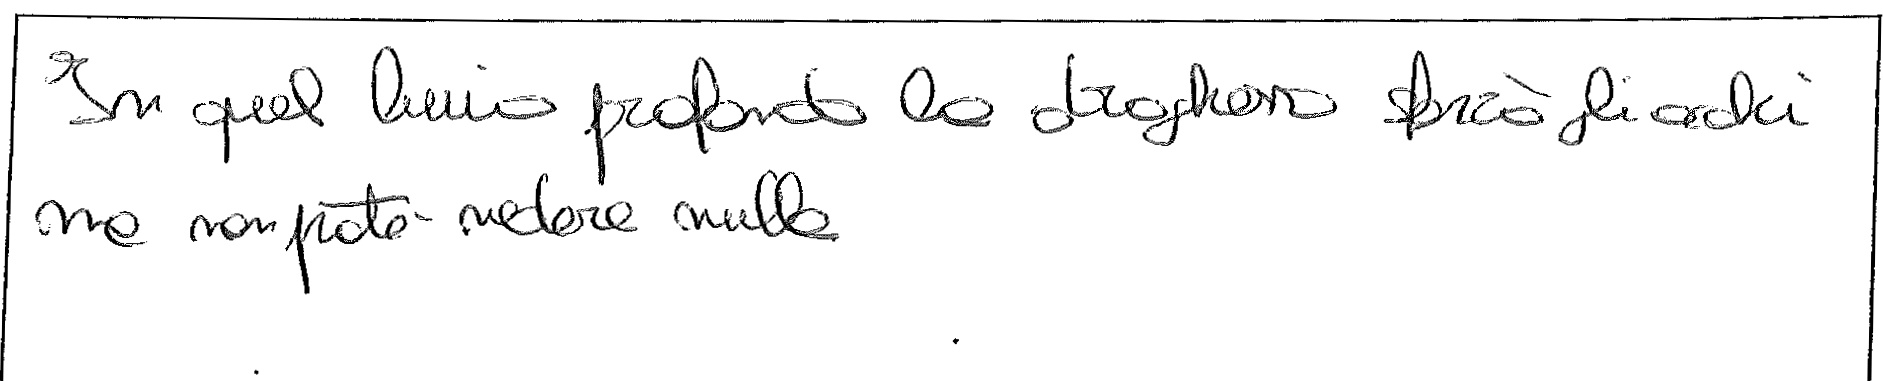 In quel buio profondo la droghera sforzò gli occhi
ma non poté vedere nulla